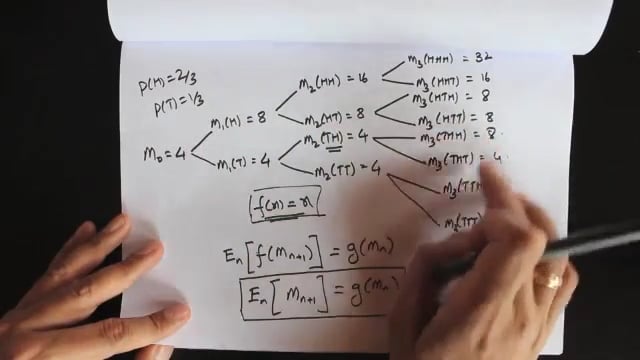 P(H) = 2/3
P(T) = 1/3
M₀ = 4
M₁(H) = 8
M₁(T) = 4
M₂(HH) = 16
M₂(HT) = 8
M₂(TH) = 4
M₂(TT) = 4
M₃(HHH) = 32
M₃(HHT) = 16
M₃(HTH) = 8
M₃(HTT) = 8
M₃(THH) = 8
M₃(THT) = 4
M₃(TTH
f(x) = x
Eₙ[f(Mₙ₊₁)] = g(Mₙ)
Eₙ[Mₙ₊₁] = g(Mₙ)